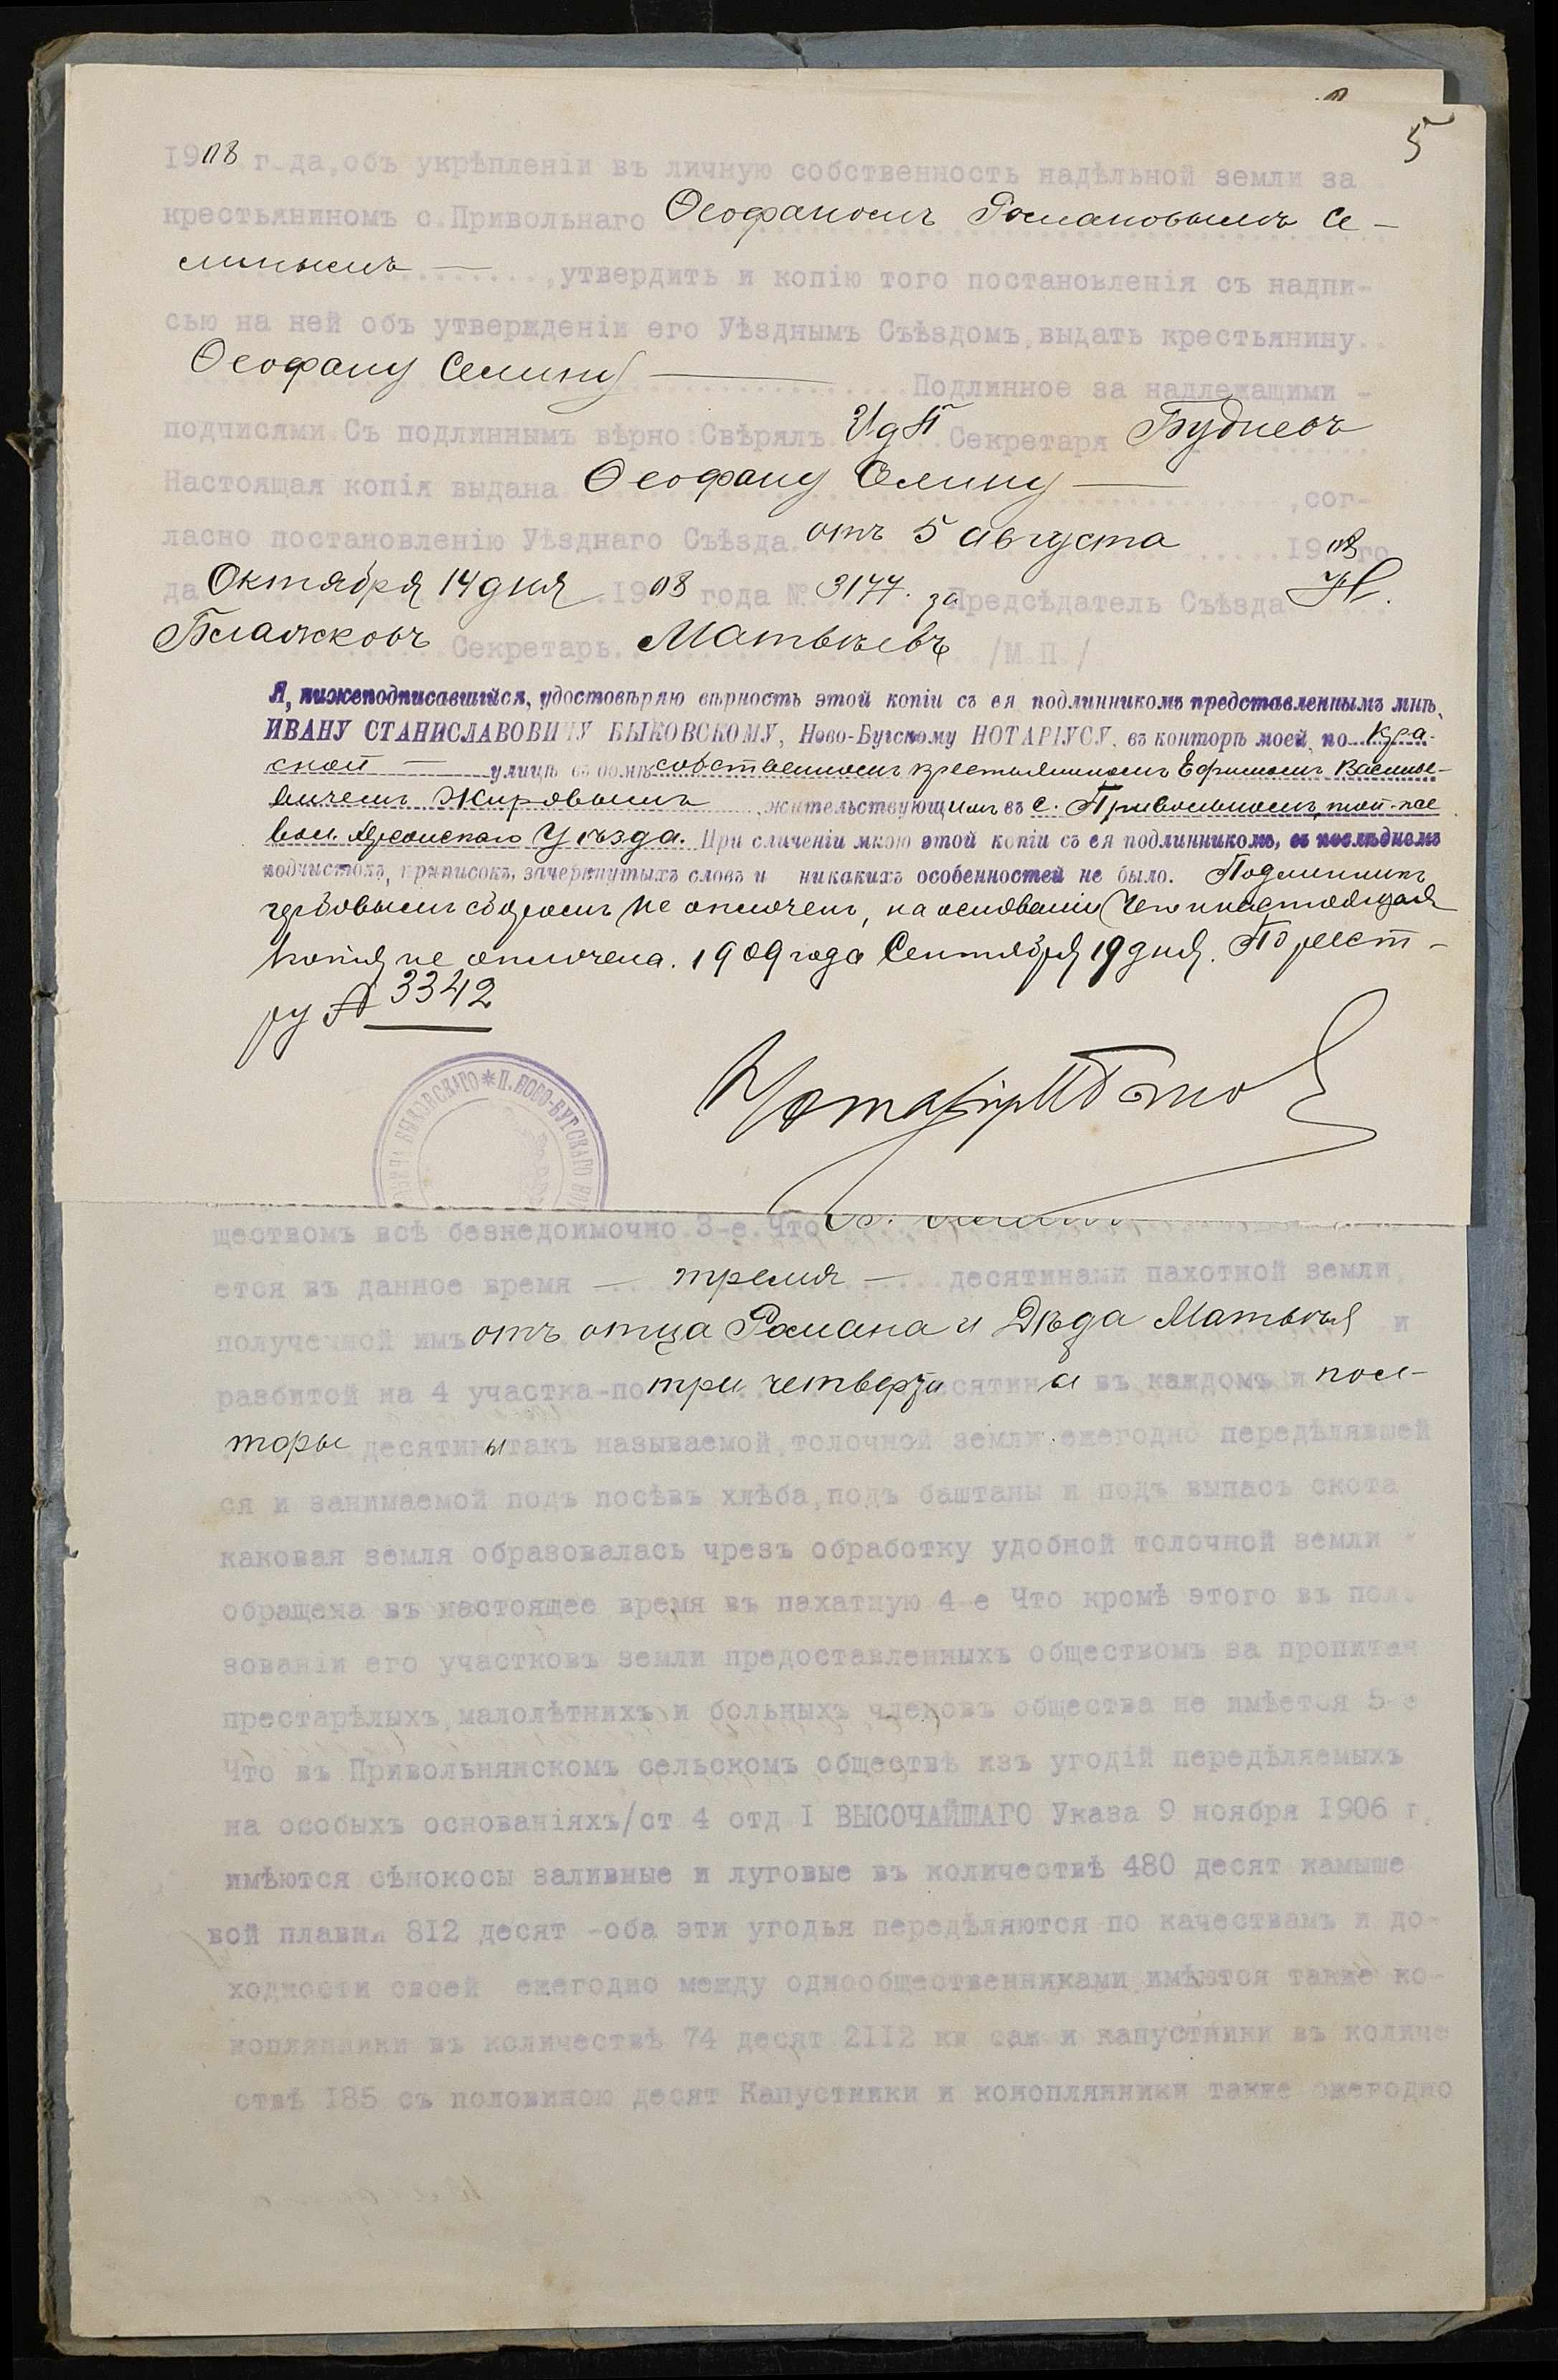 5
1908 г-да, объ укрѣпленіи въ личную собственность надѣльной земли за
крестьяниномъ с. Привольнаго Ѳеофаномъ Романовымъ Се-
минымъ — , утвердить и копію того постановленія съ надпи-
сью на ней объ утвержденіи его Уѣзднымъ Съѣздомъ, выдать крестьянину
Ѳеофану Семину — Подлинное за надлежащими -
подписями. Съ подлиннымъ вѣрно: Свѣрялъ И д П Секретаря
Настоящая копія выдана Ѳеофану Семину — , сог-
ласно постановленію Уѣзднаго Съѣзда отъ 5 августа 1908 го
да Октября 14 дня 1908 года № 3177. за Предсѣдатель Съѣзда Н.
Блажковъ Секретарь Матвѣевъ /М.П./
Я, нижеподписавшійся, удостовѣряю вѣрность этой копіи съ ея подлинникомъ представленнымъ мнѣ,
ИВАНУ СТАНИСЛАВОВИЧУ БЫКОВСКОМУ, Ново-Бугскому НОТАРІУСУ, въ конторѣ моей, по Кра-
сной — улицѣ въ домѣ собственномъ крестьяниномъ Ефимомъ Василье-
вичемъ Жировымъ жительствующимъ въ с. Привольномъ, той-же
вол. Херсонскаго Уѣзда. При сличеніи мною этой копіи съ ея подлинникомъ, въ послѣднемъ
подчистокъ, приписокъ, зачеркнутыхъ словъ и никакихъ особенностей не было. Подлинникъ
гербовымъ сборомъ не оплоченъ, на основаніи чего и настоящая
копія не оплочена. 1909 года Сентября 19 дня. По реест-
ру № 3342
Нотаріусъ
БЫКОВСКАГО * П. НОВО-БУГСКАГО
ществомъ всѣ безнедоимочно 3-е. Что
ется въ данное время — тремя — десятинами пахотной земли,
полученной имъ отъ отца Романа и Дѣда Матвѣя и
разбитой на 4 участка-по три четверти десятины въ каждомъ и пол-
торы десятины такъ называемой толочной земли ежегодно передѣлявшей
ся и занимаемой подъ посѣвъ хлѣба, подъ баштаны и подъ выпасъ скота
каковая земля образовалась чрезъ обработку удобной толочной земли
обращена въ настоящее время въ пахатную 4-е Что кромѣ этого въ поль
зованіи его участковъ земли предоставленныхъ обществомъ за пропитан
престарѣлыхъ, малолѣтнихъ и больныхъ членовъ общества не имѣется 5-е
Что въ Привольнянскомъ сельскомъ обществѣ изъ угодій передѣляемыхъ
на особыхъ основаніяхъ/ст 4 отд I ВЫСОЧАЙШАГО Указа 9 ноября 1906 г.
имѣются сѣнокосы заливные и луговые въ количествѣ 480 десят камыше
вой плавни 812 десят -оба эти угодья передѣляются по качествамъ и до-
ходности своей ежегодно между однообщественниками имѣются также ко-
ноплянники въ количествѣ 74 десят 2112 кв саж и капустники въ количе
ствѣ 185 съ половиною десят Капустники и коноплянники также ежегодно